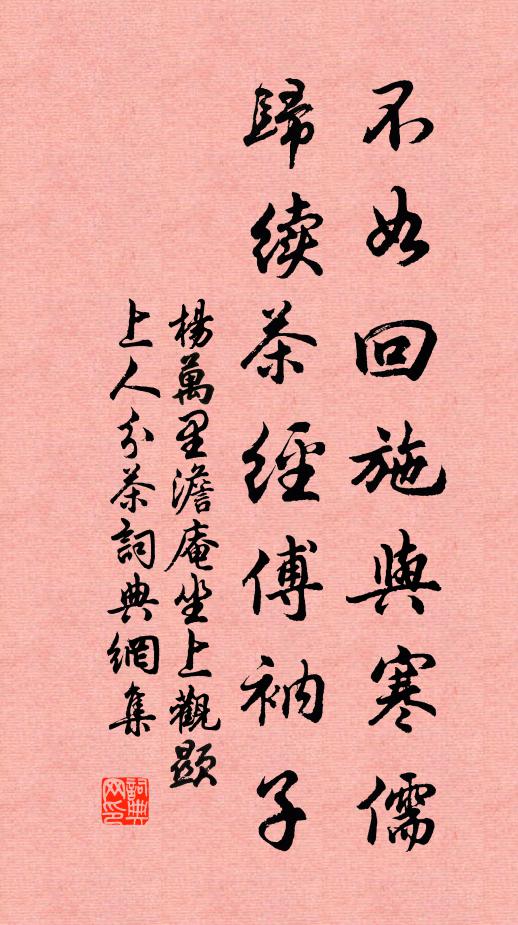 不如回施與寒儒
歸續茶經傅衲子
楊萬里澹庵坐上觀顯
上人分茶詞典網集
詞典网印